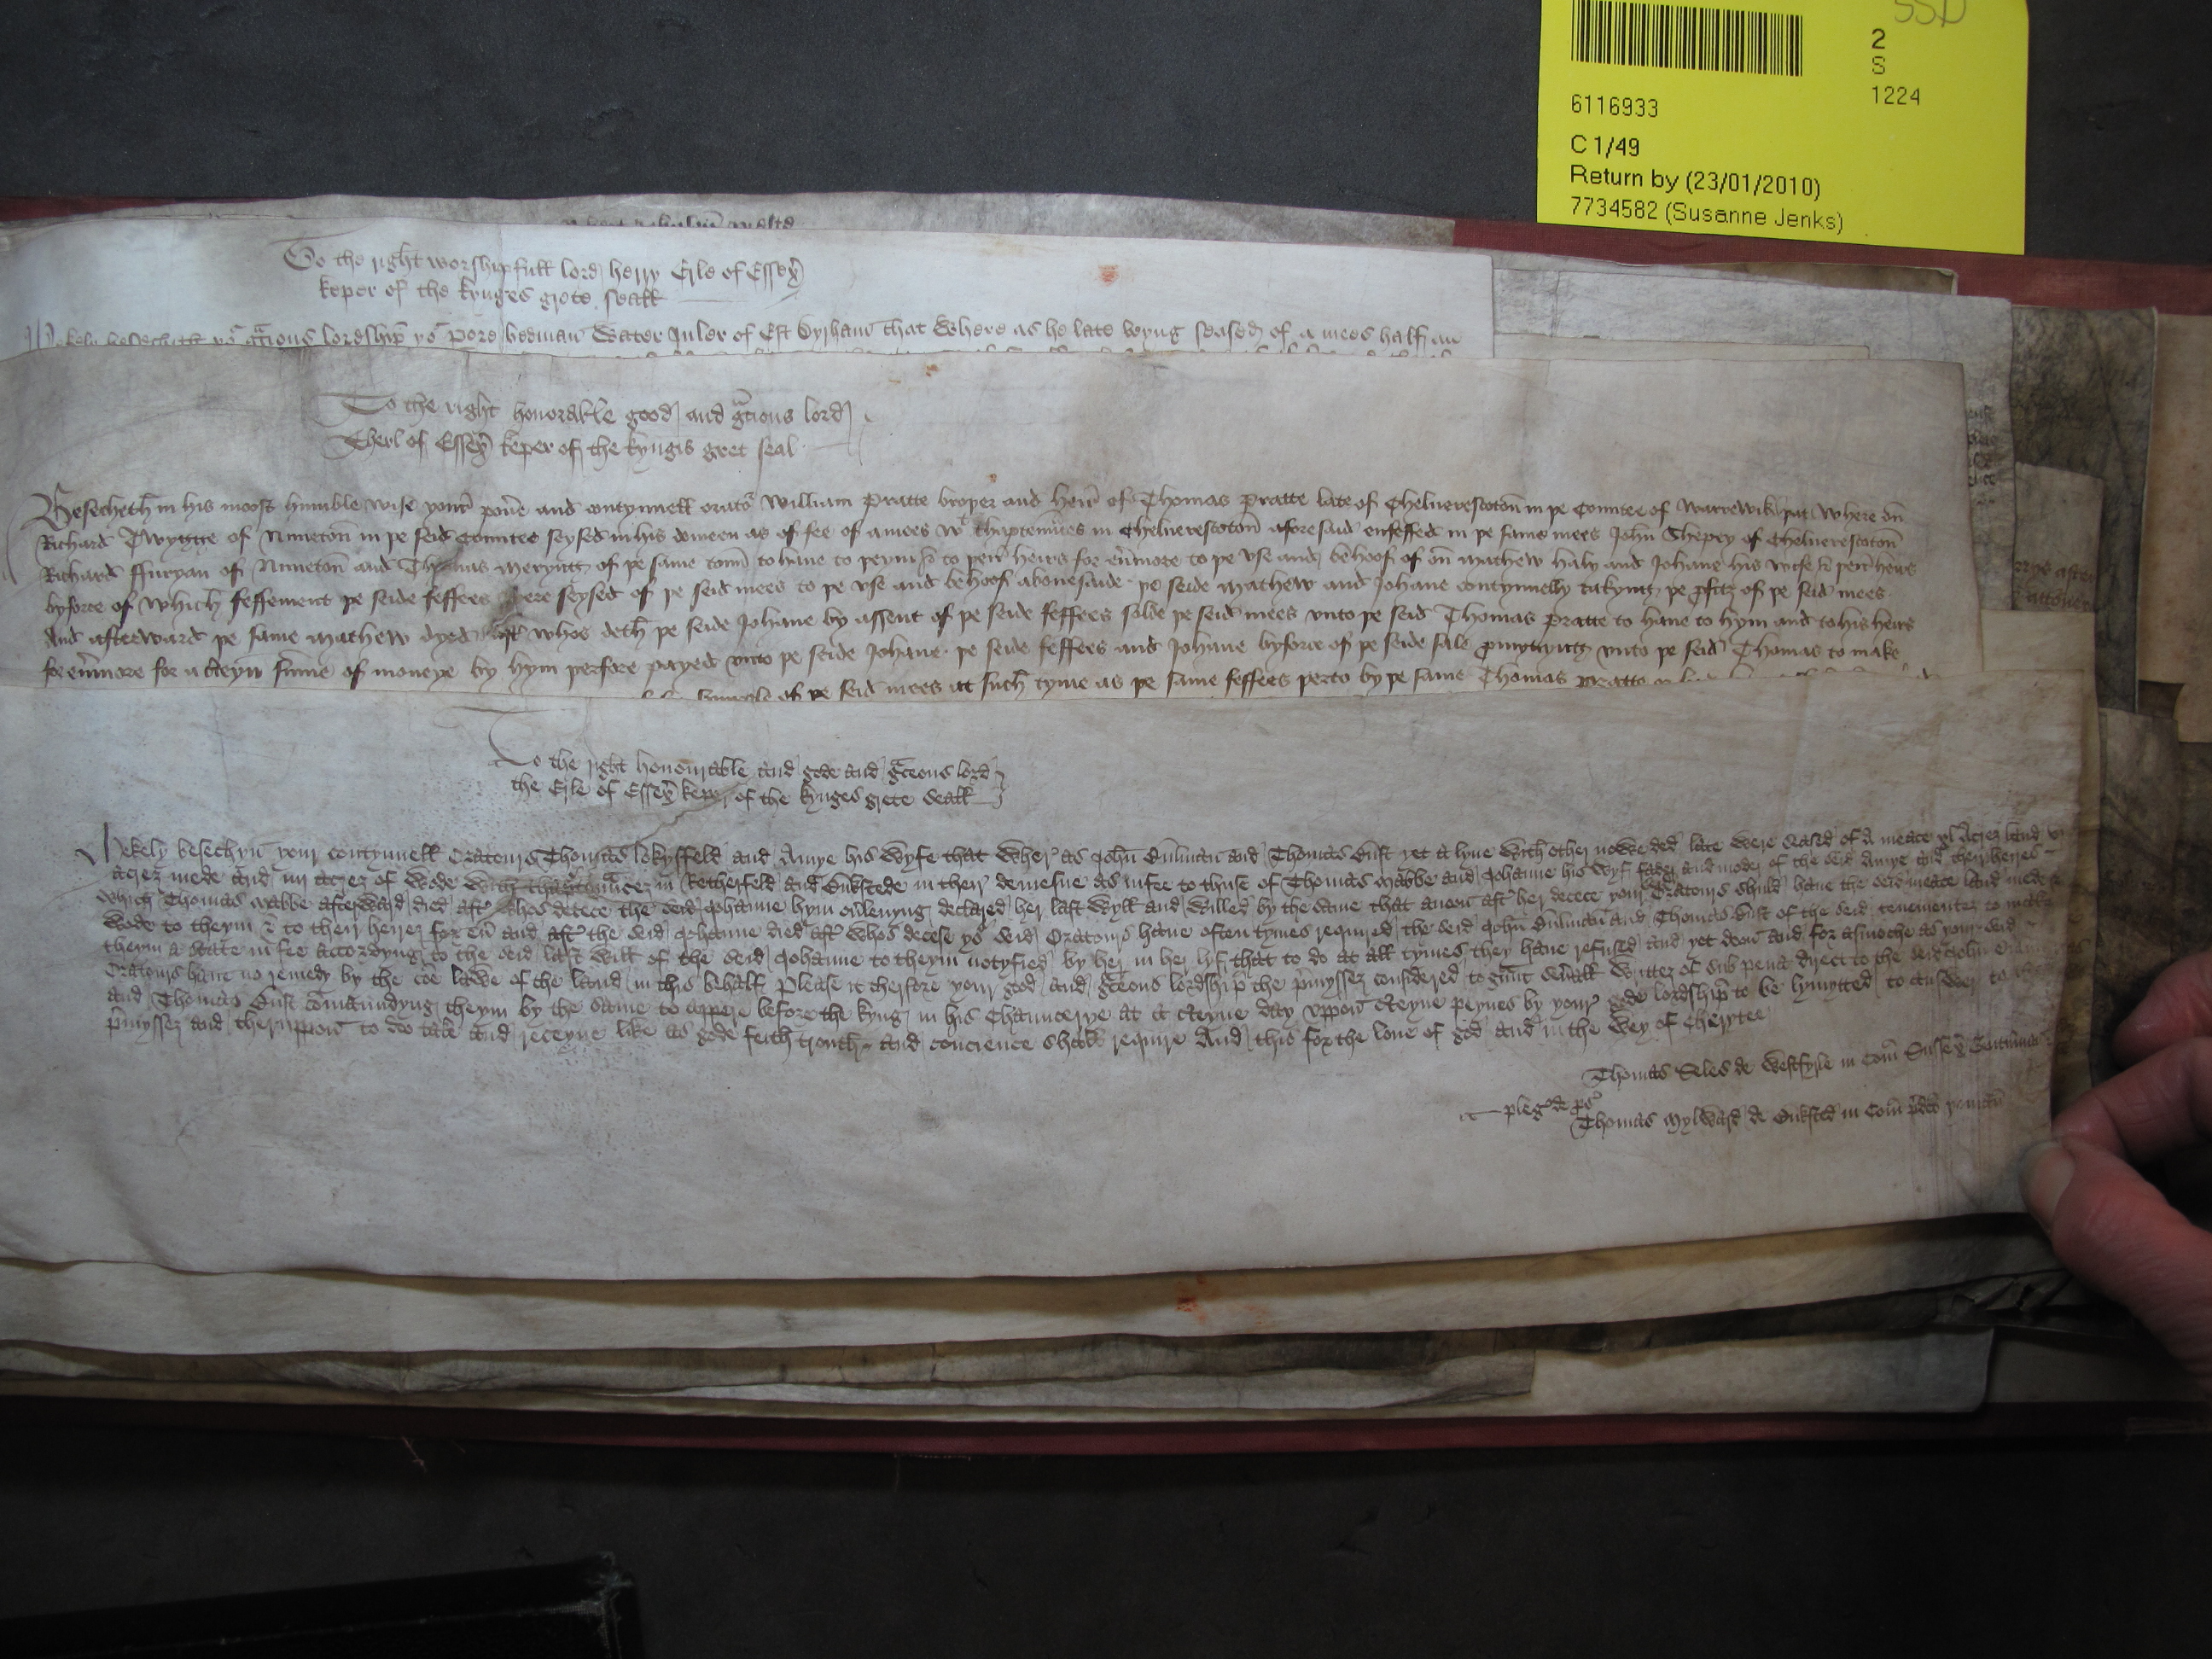 SSD
2
S
1224
6116933
C 1/49
Return by (23/01/2010)
7734582 (Susanne Jenks)
To the right worshipfull lord herry Erle of Essex
keper of the kynges grete seall
Mekely besechith yor gracious lordship yor pore bedman Water of Est that where as he late beyng seased of a mees half an
To the right honorable good and gracious lord
Therl of Essex keper of the kyngis gret seal
Besecheth in his moost humble wise your povre and contynuell orator William Pratte broþer and heir of Thomas Pratte late of Chelverescoton in þe Comitee of Warrewik þat where on
Richard Twygge of Nuneton in þe seid Comitee seysed in his demeen as of fee of a mees wt thapptennces in Chelverescoton aforesaid enfeffed in þe same mees John Shepey of Chelverescoton
Richard ffuryan of Nuneton and Thomas of þe same toun to have to þeym & to þeir heirs for evermore to þe use and behoof of on Mathew haly and Johane his wife & þeir heirs
byforce of which feffement þe seide feffees were seysed of þe seid mees to þe use and behoof abovesaide þe seide Mathew and Johane contynuelly takyng þe pfitz of þe seid mees
And afterward þe same Mathew dyed aftr whos deth þe seide Johane by assent of þe seide feffees solde þe seid mees unto þe seid Thomas Pratte to have to hym and to his heirs
for evermore for a cteyn sume of moneye by hym þerfore payed unto þe seide Johane þe seide feffees and Johane byforce of þe seide sale promyttyng unto þe seid Thomas to make
of þe seid mees at such tyme as þe same feffees þerto by þe same Thomas Pratte
To the right honourable and gode and gracous lord
the Erle of Essex keper of the kynges grete seall
Mekely besechyn your contynuell Oratours Thomas lokyffeld and Amye his wyfe that wher as John and Thomas yet a lyve with other nowe ded late were seased of a meace xl acrez land
acrez mede and iiij acrez of wode with in Retherfeld and Bukstede in their demesne as in fee to thuse of Thomas Wabbe and Johanne his wyf fader and moder of the seid Amye and their heires
which Thomas Wabbe afterward died aftr whos decece the seid Johanne hym overlevyng declared her last wyll and willed by the same that anon aftr her decece your Oratours shuld have the seid meace land mede &
wode to theym & to their heirez for ev and aftr the seid Johanne died aftr whos decese yor seid Oratours have often tymes required the seid John and Thomas of the seid tenementez to make
theym a state in fee accordyng to the seid last will of the seid Johanne to theym notyfied by her in her lyf that to do at all tymes they have refused and yet doon and for asmoche as your seid
Oratours have no remedy by the coe lawe of the land in this behalf Please it therfore your good and gracous lordship the pmyssez considered to graunt sevall writtez of sub pena direct to the seid John
and Thomas comaundyng theym by the same to appere before the kyng in his Chauncerye at a cteyne day uppon cteyne peynes by your gode lordship to be lymytted to answer to
pmyssez and theruppon to do take and receyve like as gode feith trouth and concience shall require And this for the love of god and in the wey of cheryte
Thomas Seles de Westfyrle in Com Sussex
pleg de ps
Thomas Mylward de Buksted in Com pdco